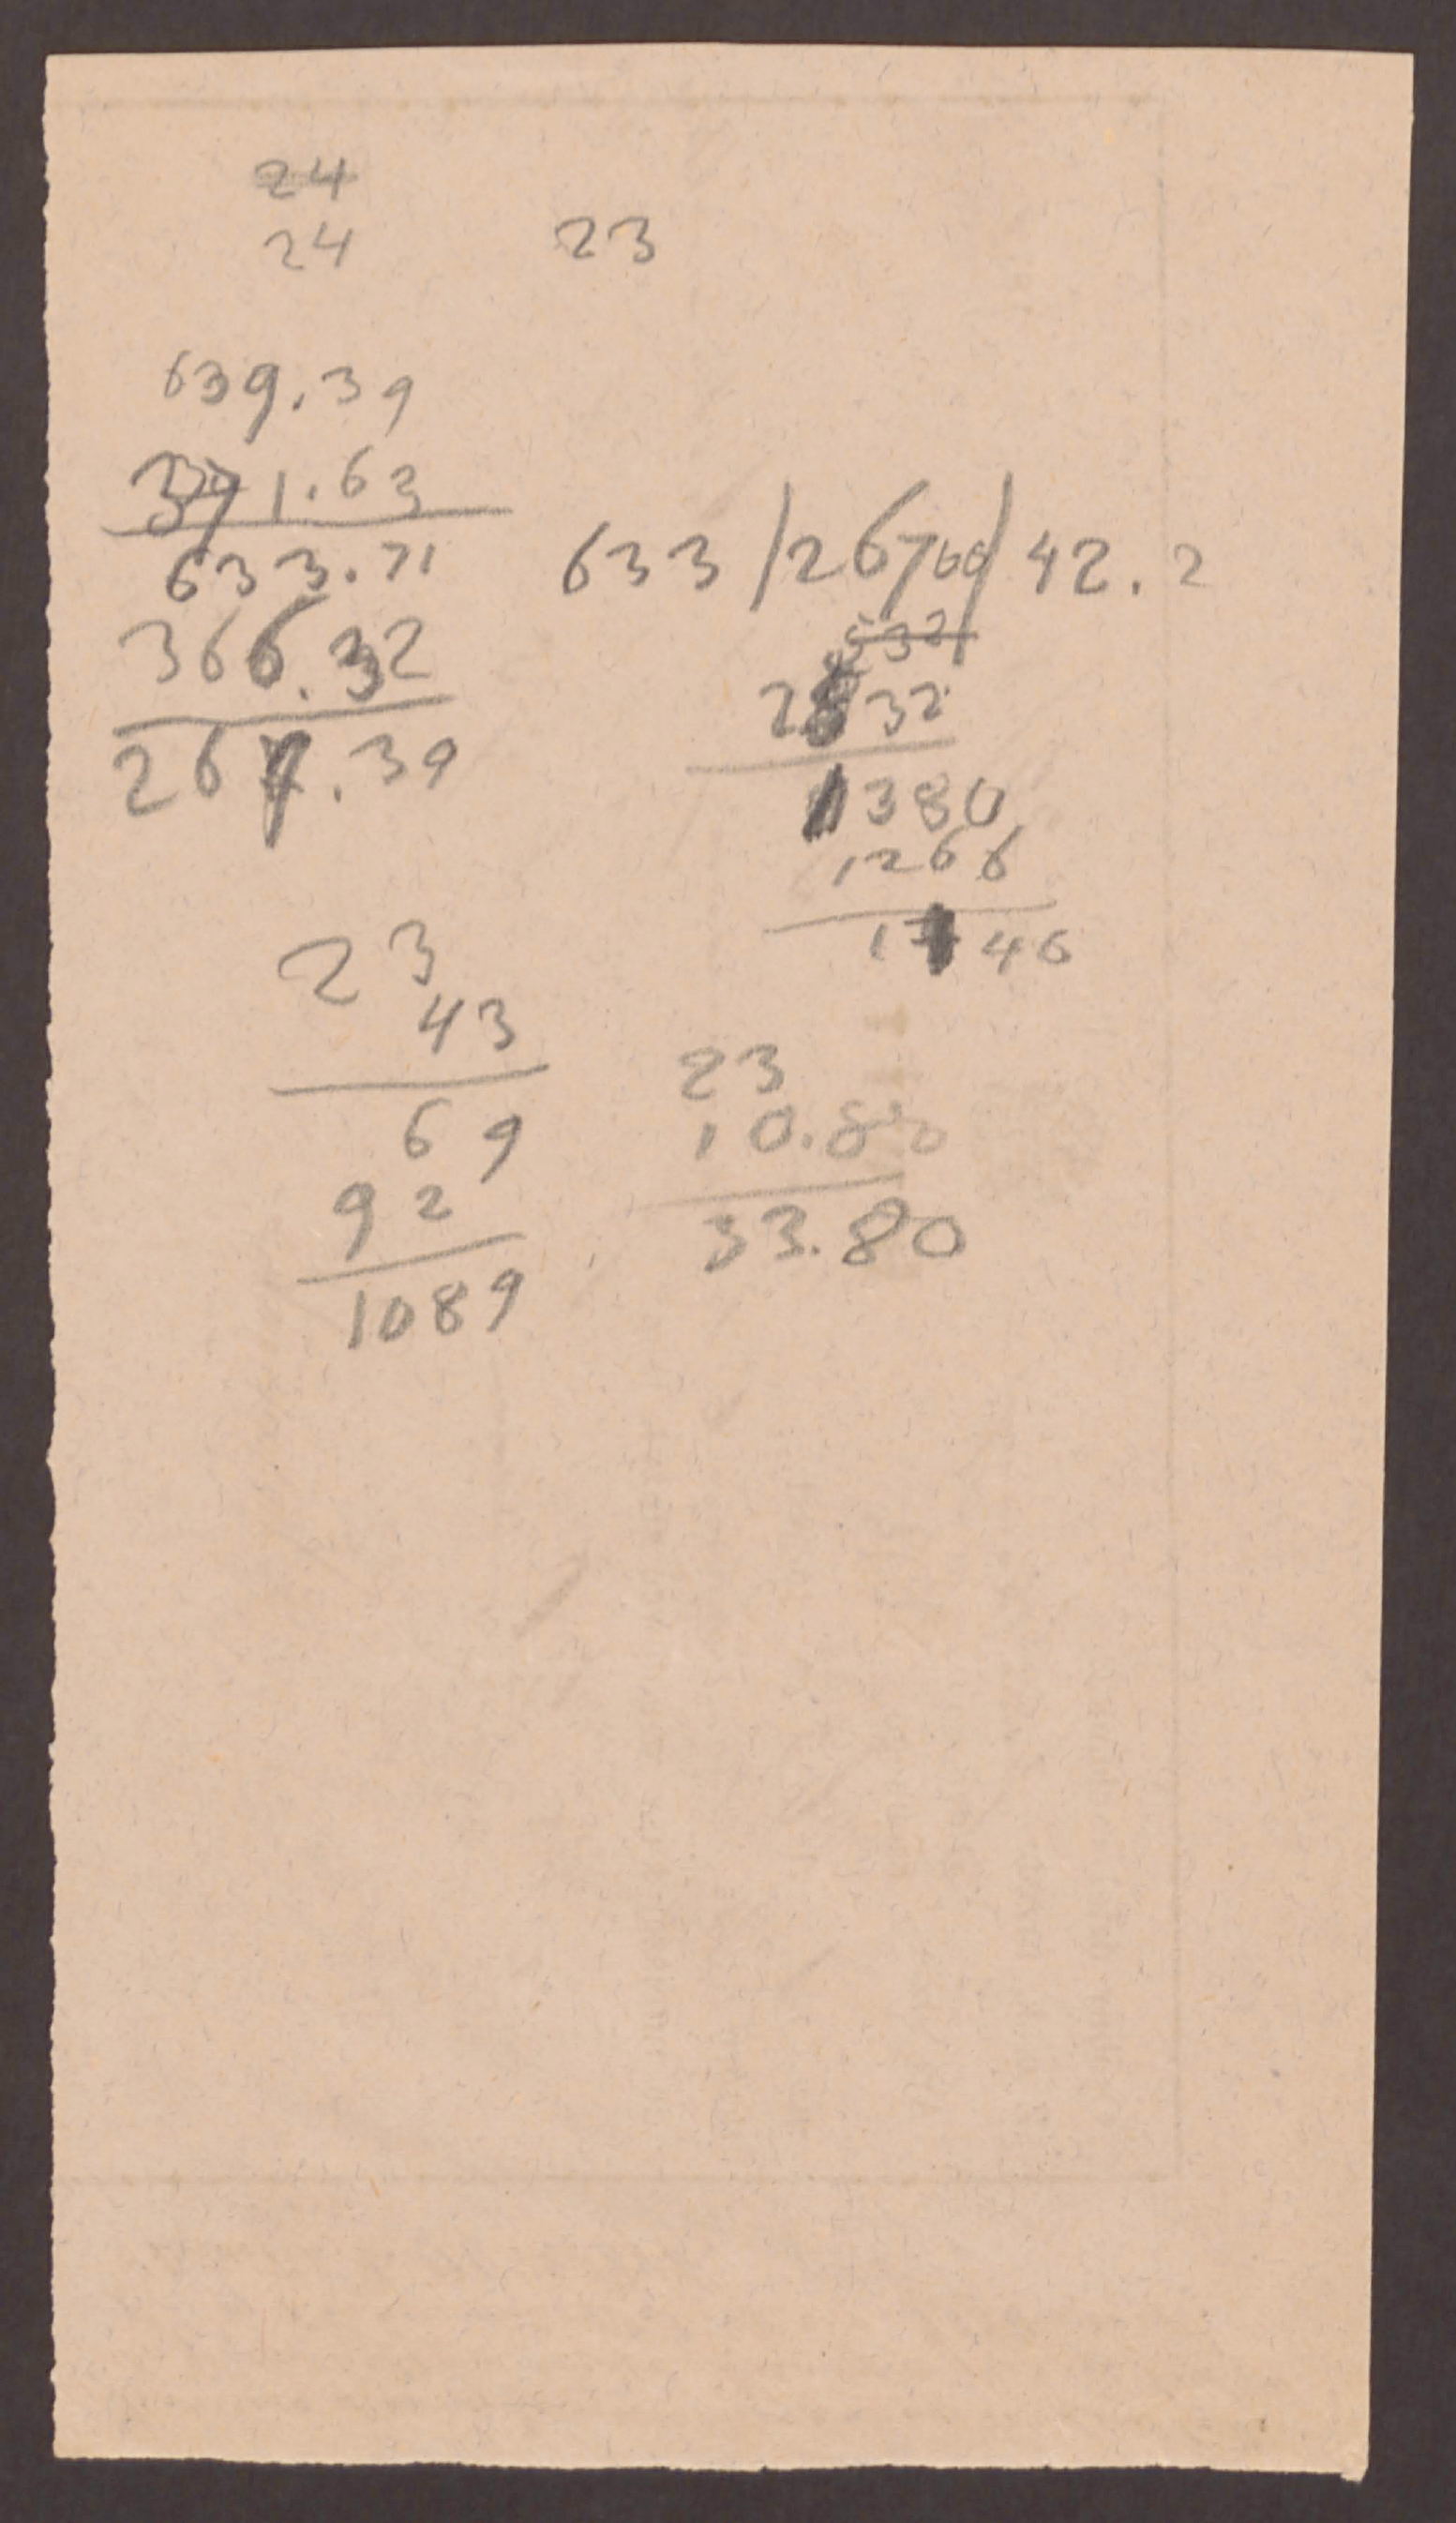 24
24 23
639.39
371.63
633.71
366.32
267.39
633/26700/42.2
532
2532
1380
1266
1146
23
43
69
92
1089
23
10.80
33.80